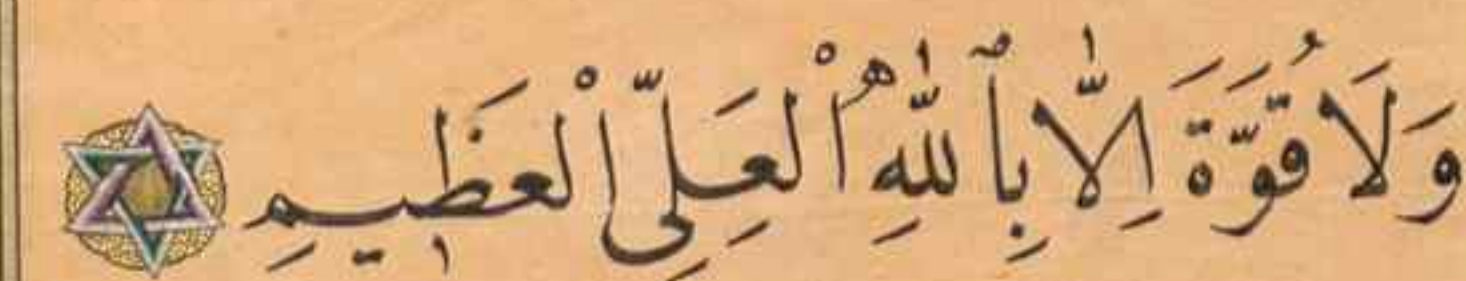 وَلَا قُوَّةَ اِلَّا بِٱللّٰهِ ٱلْعَلِىِّ ٱلْعَظ۪يمِ